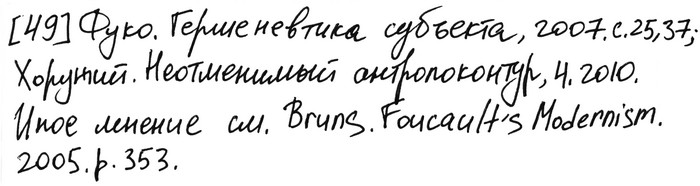 [49] Фуко. Герменевтика субъекта, 2007. с. 25, 37;
Хоружий. Неотменимый антропоконтур, 4. 2010.
Иное мнение см. Bruns. Foucault's Modernism.
2005. p. 353.